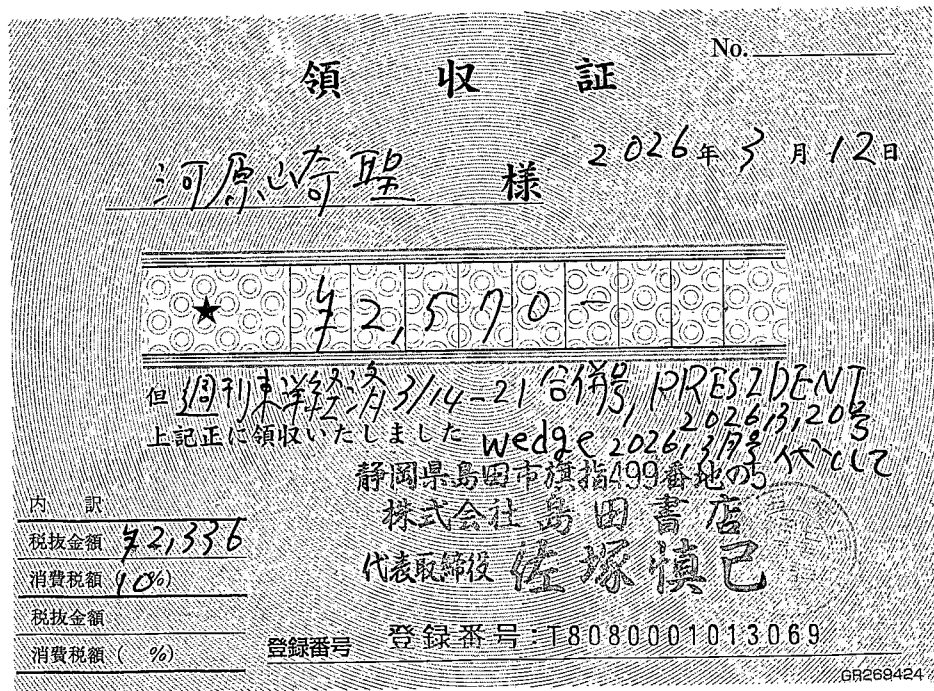 No.
領収証
2026年3月12日
河原崎聖 様
★ ¥2,570-
但 週刊東洋経済3/14-21合併号, PRESIDENT
2026,3,20号
上記正に領収いたしました wedge 2026,3月号 代として
静岡県島田市旗指499番地の5
株式会社 島田書店
代表取締役 佐塚慎己
内訳
税抜金額 ¥2,336
消費税額(10%)
税抜金額
消費税額( %)
登録番号 登録番号:T8080001013069
GR269424